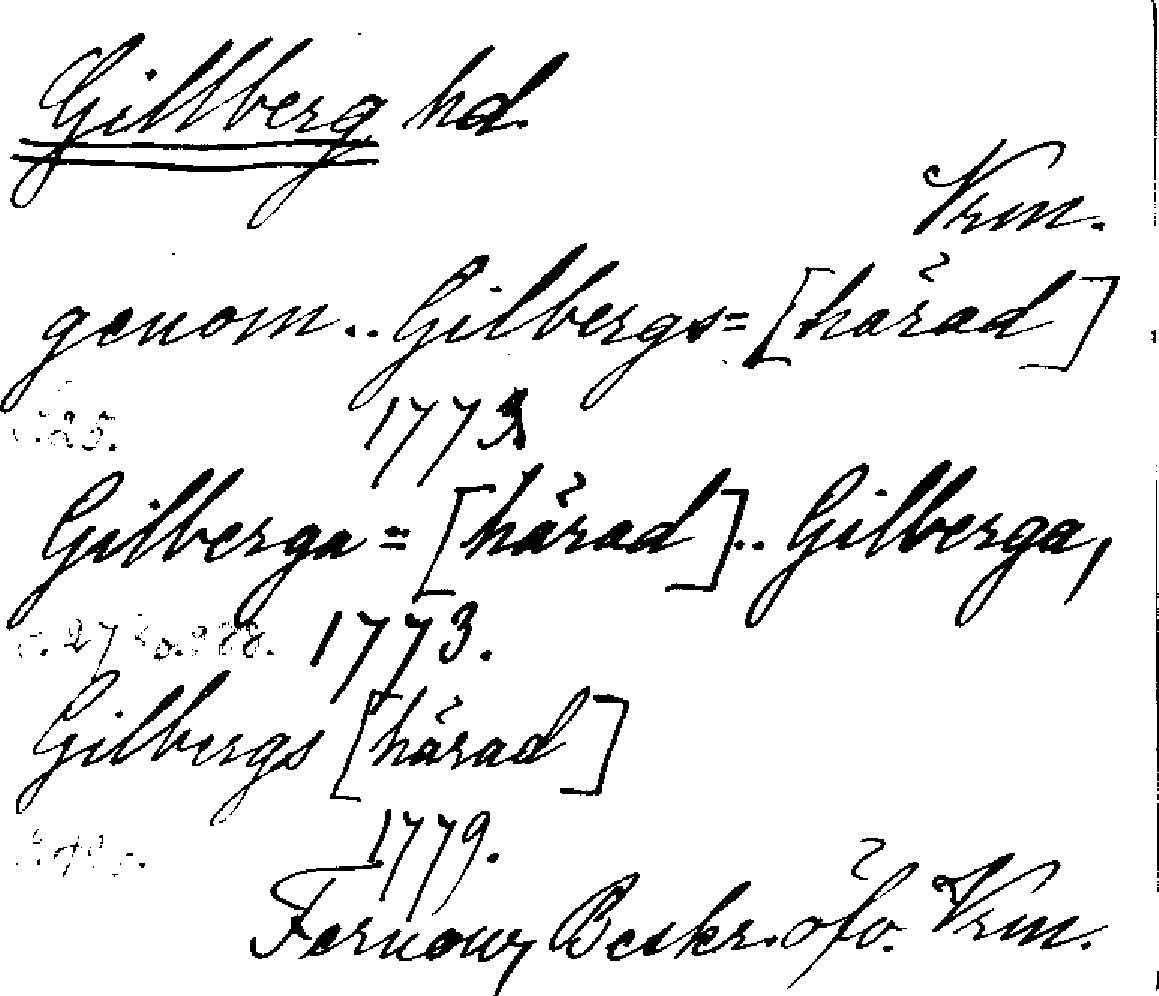 Gillberg hd.
Vrm.
genom.. Gilbergs= [härad]
s. 25. 1773
Gilberga= [härad].. Gilberga,
1773.
Gilbergs [härad]
1779.
Fernow, Beskr. öfv. Vrm.